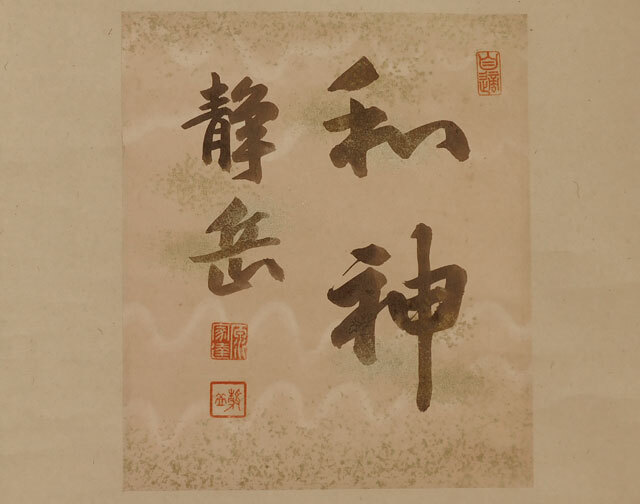 和神
静岳